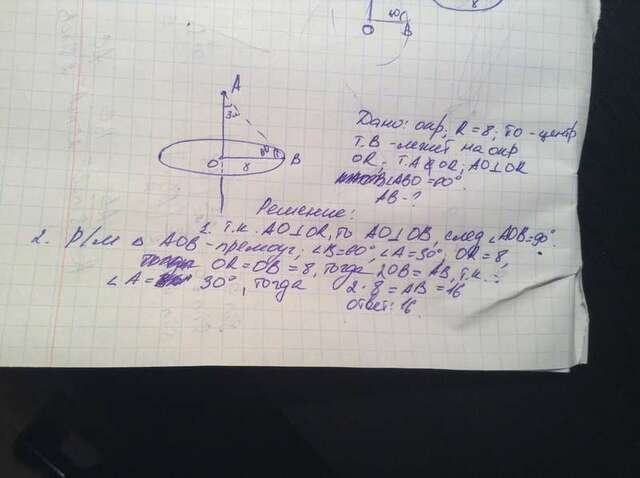 60
O
B
8
A
30
60
O
8
B
Дано: окр; R=8; т.O - центр
Т. B - лежит на окр
OR; т.A ∉ OR; AO⊥OR
∠ABO=60°.
AB-?
Решение:
1. Т.к. AO⊥OR, то AO⊥OB, след ∠AOB=90°.
2. Р/м ∆ AOB - прямоуг; ∠B=60°, ∠A=30°, OR=8,
OR=OB=8, тогда 2OB=AB, т.к.
∠A= 30°, тогда 2·8=AB=16
Ответ: 16